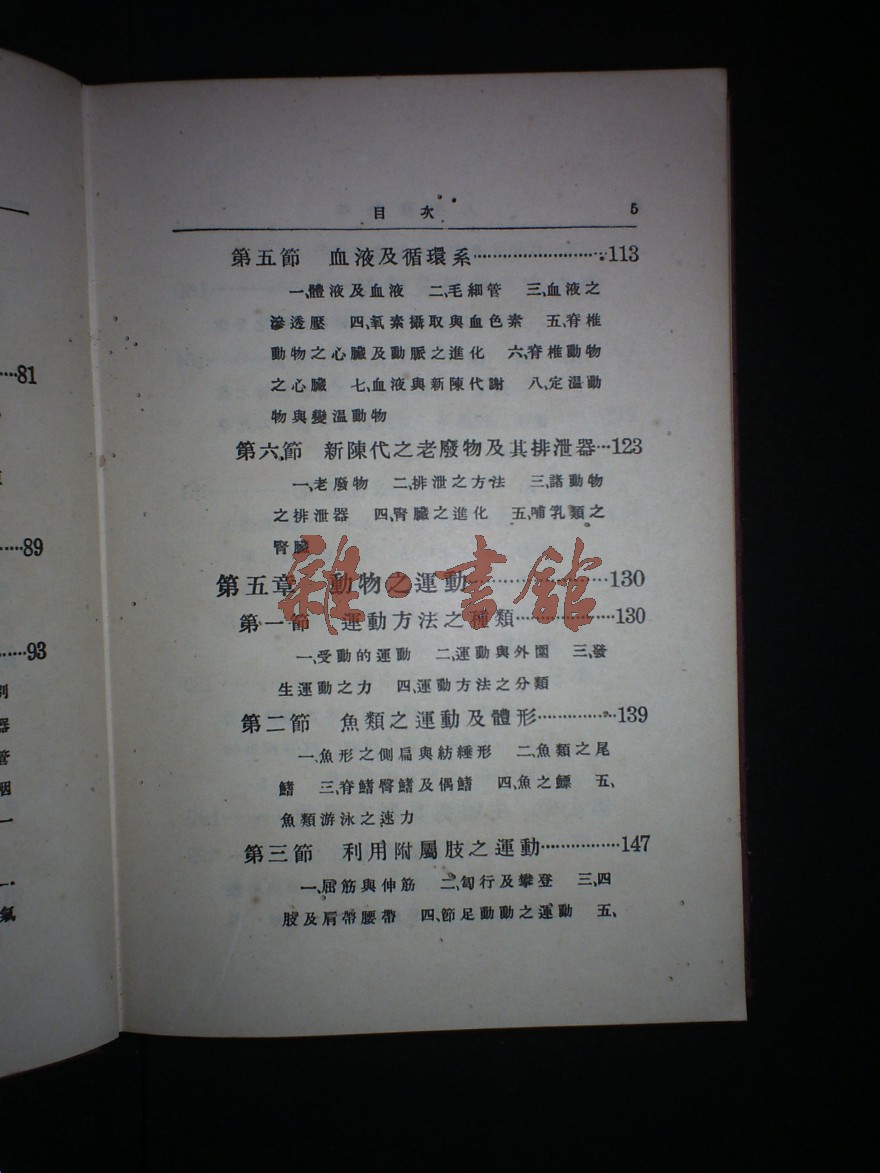 目次 5
第五節 血液及循環系……………………113
一、體液及血液 二、毛細管 三、血液之
滲透壓 四、氧素攝取與血色素 五、脊椎
動物之心臟及動脈之進化 六、脊椎動物
之心臟 七、血液與新陳代謝 八、定溫動
物與變溫動物
第六節 新陳代之老廢物及其排泄器…123
一、老廢物 二、排泄之方法 三、諸動物
之排泄器 四、腎臟之進化 五、哺乳類之
腎臟
第五章 動物之運動……………………130
第一節 運動方法之種類………………130
一、受動的運動 二、運動與外圍 三、發
生運動之力 四、運動方法之分類
第二節 魚類之運動及體形……………139
一、魚形之側扁與紡綞形 二、魚類之尾
鰭 三、脊鰭臀鰭及偶鰭 四、魚之鰾 五、
魚類游泳之速力
第三節 利用附屬肢之運動……………147
一、屈筋與伸筋 二、匐行及攀登 三、四
肢及肩帶腰帶 四、節足動動之運動 五、
雜·書館
…81
…89
…93
器
管
咽
一
氣